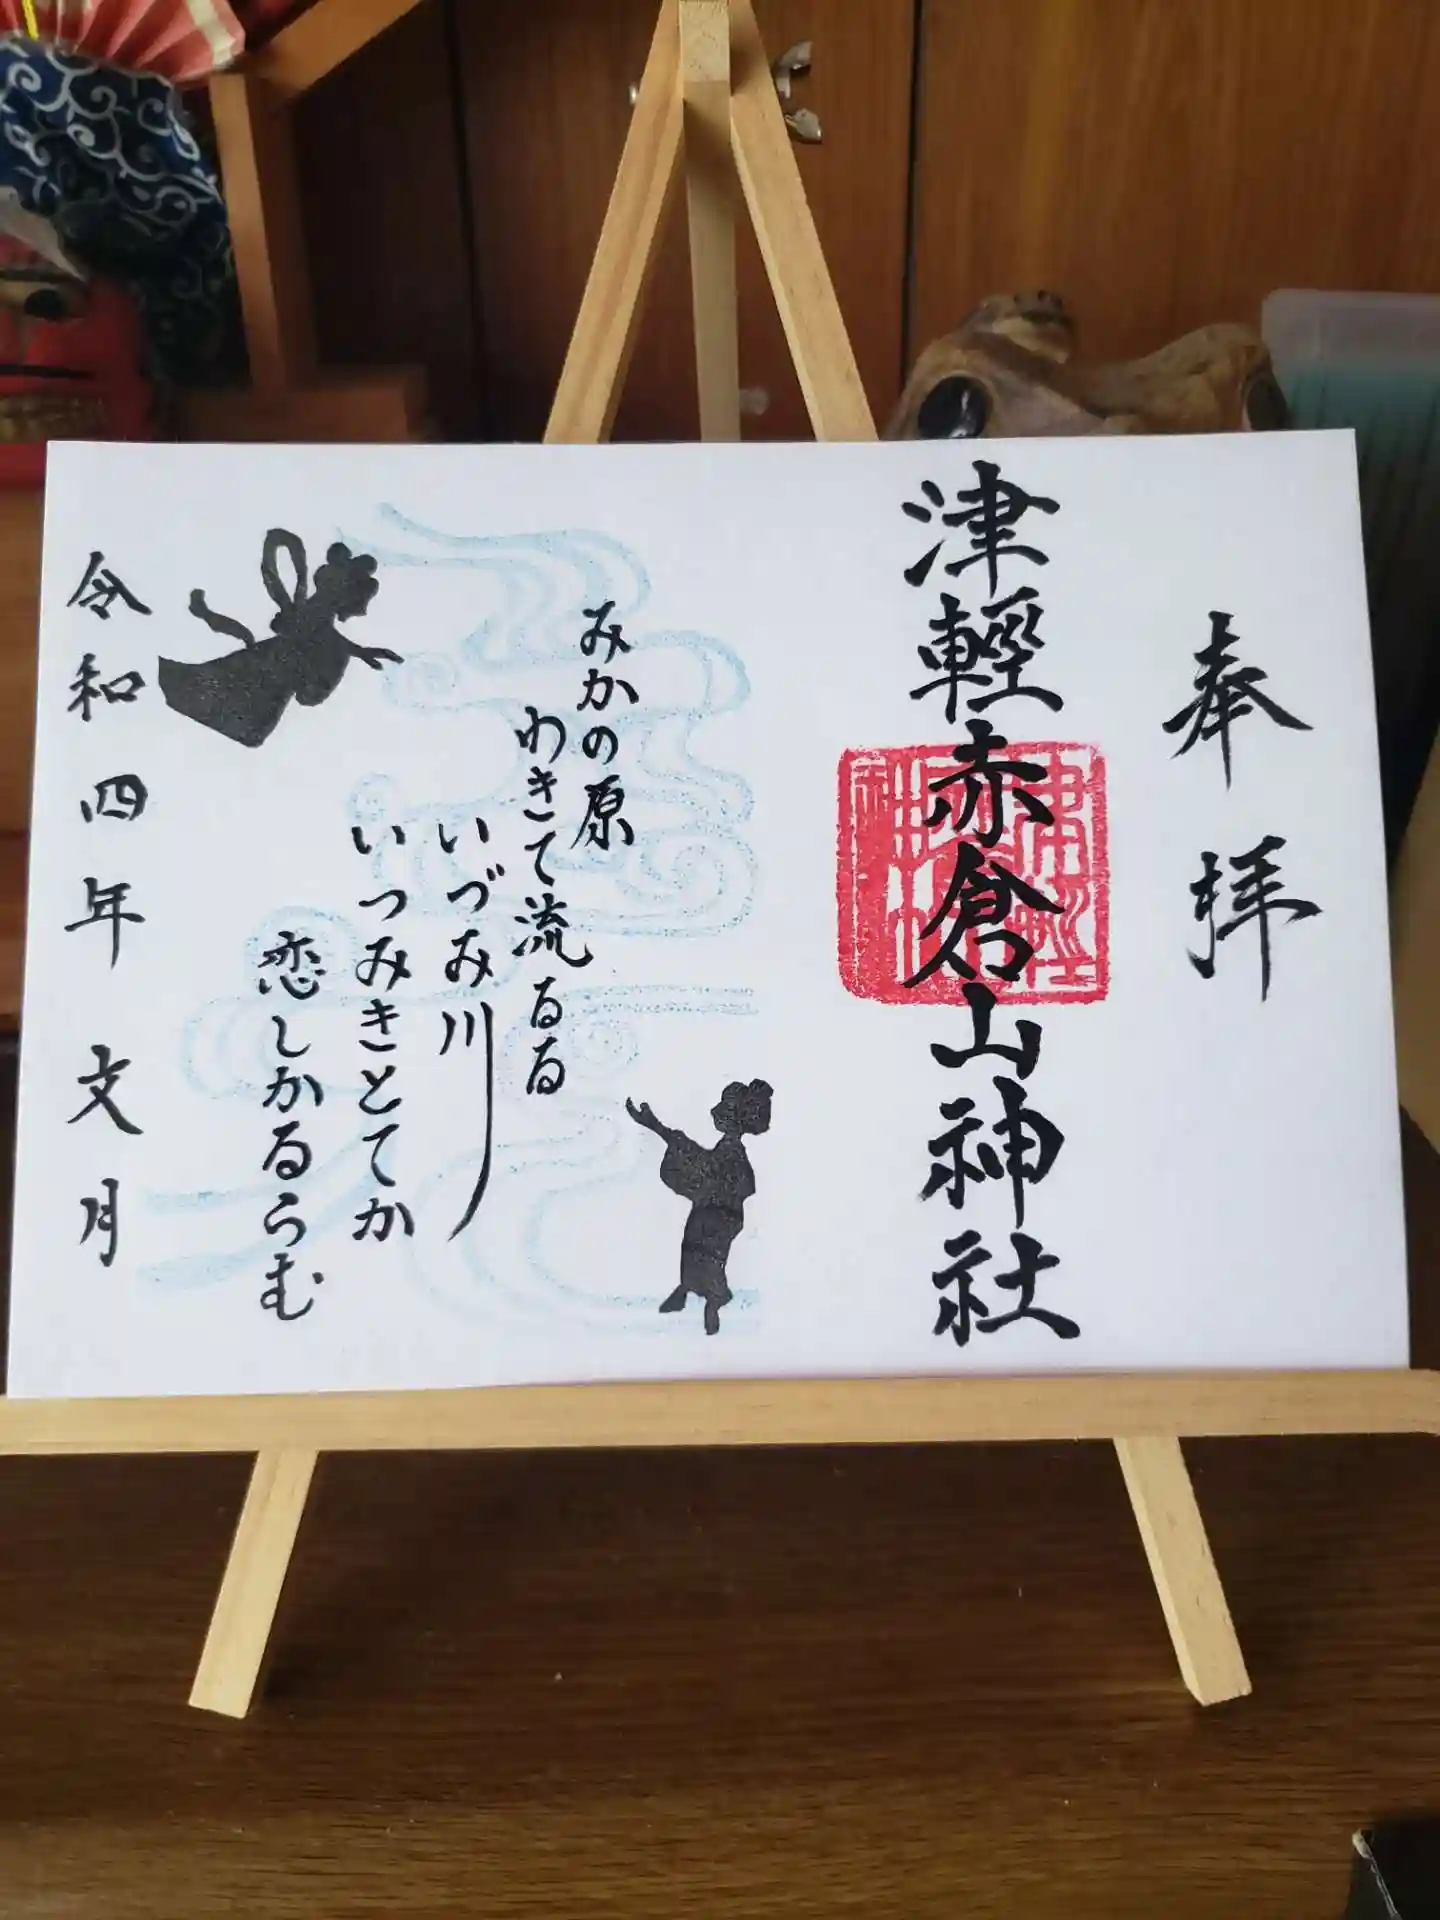 奉拝
津輕赤倉山神社
みかの原
わきて流るる
いづみ川
いつみきとてか
恋しかるらむ
令和四年 文月